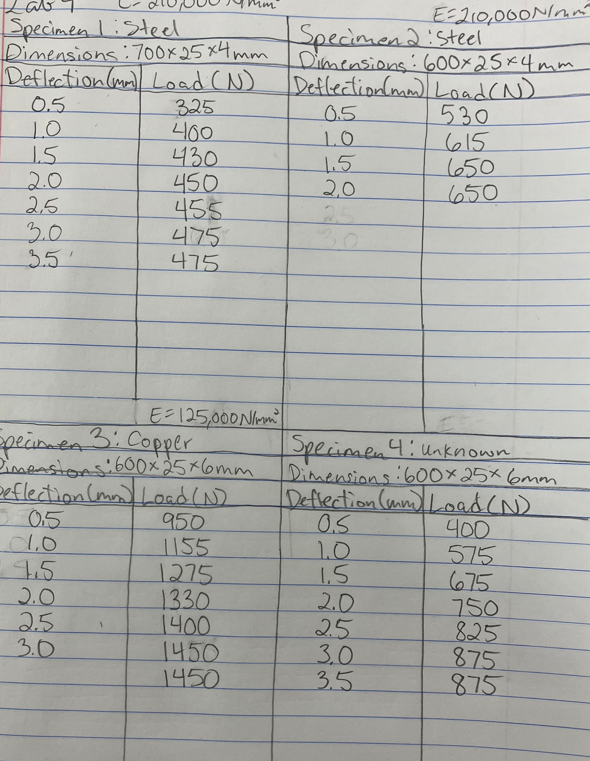 Lab 4 E=210,000 N/mm²
Specimen 1: Steel
Dimensions: 700×25×4mm
Deflection(mm) Load(N)
0.5 325
1.0 400
1.5 430
2.0 450
2.5 455
3.0 475
3.5 475
E=210,000N/mm²
Specimen 2: Steel
Dimensions: 600×25×4mm
Deflection(mm) Load(N)
0.5 530
1.0 615
1.5 650
2.0 650
2.5
3.0
E=125,000N/mm²
Specimen 3: Copper
Dimensions: 600×25×6mm
Deflection(mm) Load(N)
0.5 950
1.0 1155
1.5 1275
2.0 1330
2.5 1400
3.0 1450
1450
E=
Specimen 4: unknown
Dimensions: 600×25×6mm
Deflection(mm) Load(N)
0.5 400
1.0 575
1.5 675
2.0 750
2.5 825
3.0 875
3.5 875